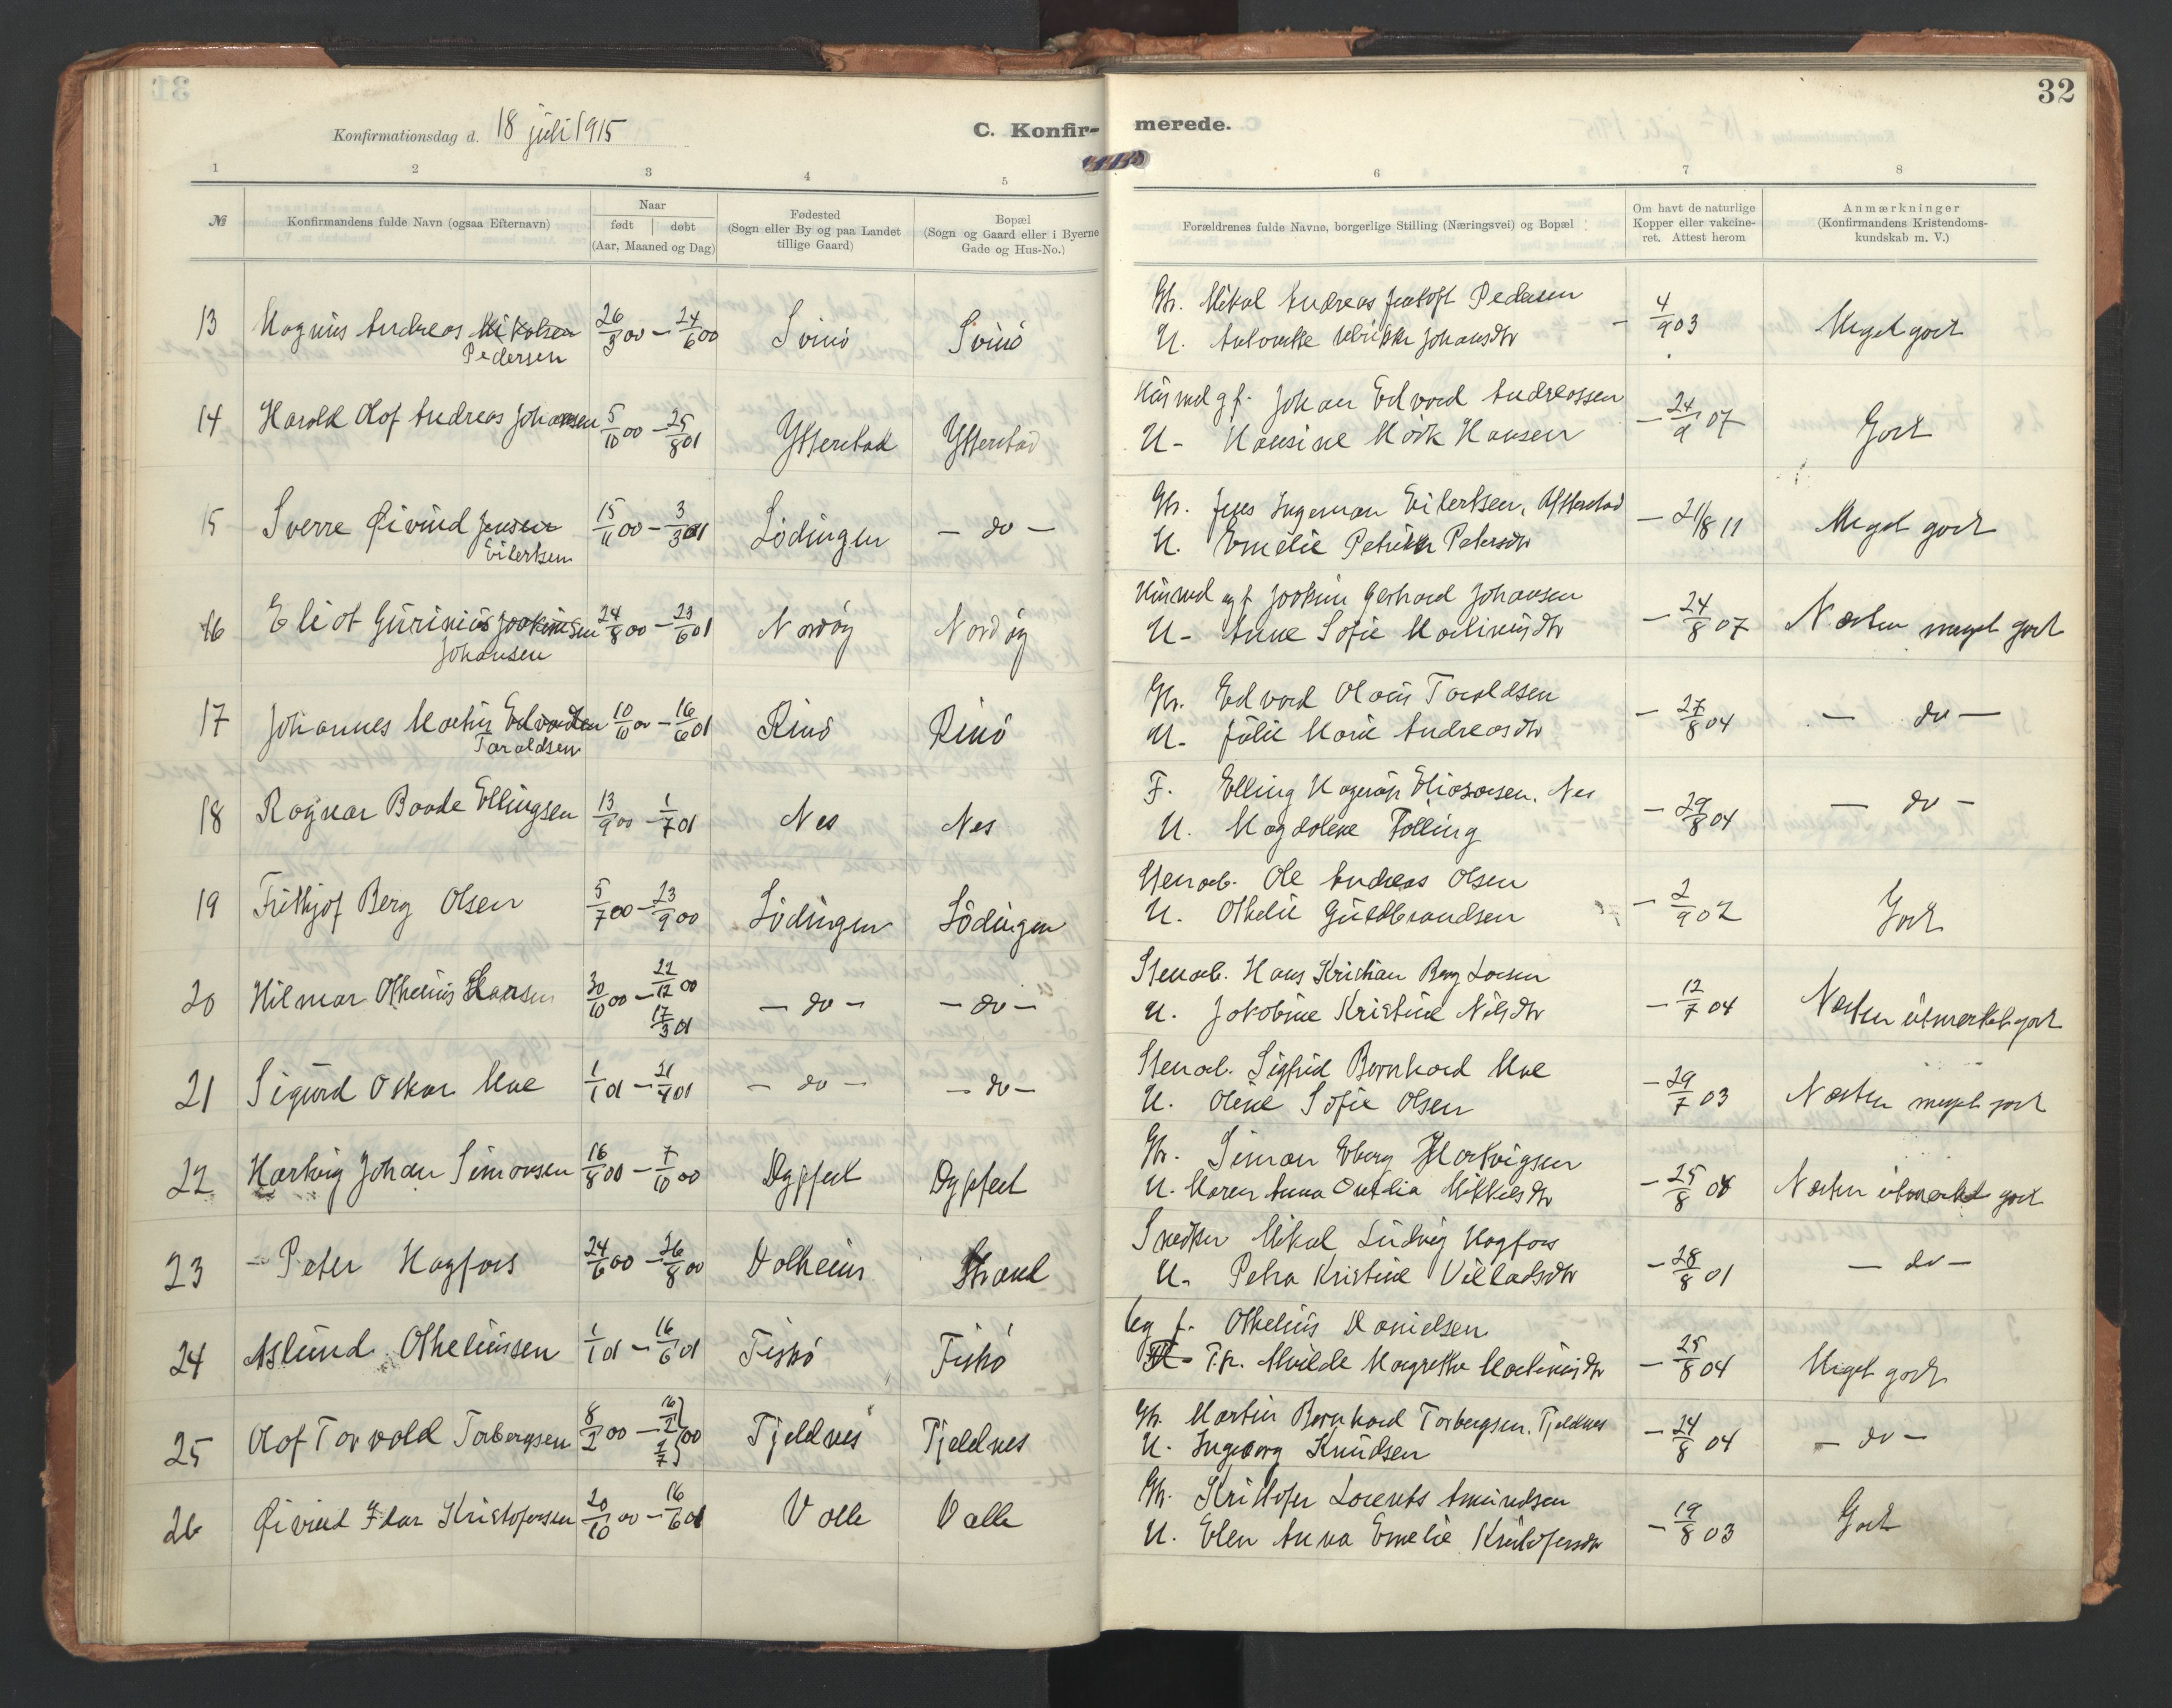 32
Konfirmationsdag d. 18 juli 1915
C. Konfir-
merede.
1 2 3 4 5 6 7 8
№
Konfirmandens fulde Navn (ogsaa Efternavn)
Naar
født | døbt
(Aar, Maaned og Dag)
Fødested
(Sogn eller By og paa Landet
tillige Gaard)
Bopæl
(Sogn og Gaard eller i Byerne
Gade og Hus-No.)
Forældrenes fulde Navne, borgerlige Stilling (Næringsvei) og Bopæl
Om havt de naturlige
Kopper eller vakcine-
ret. Attest herom
Anmærkninger
(Konfirmandens Kristendoms-
kundskab m. V.)
13 Magnus Andreas Mikalsen 26/3 00 – 24/6 00 Svinö Svinö Gbr. Mikal Andreas Jentoft Pedersen – 4/9 03 Meget godt
Pedersen U. Antonette Ulrikke Johansdtr
14 Harald Olaf Andreas Johansen 5/10 00 – 25/8 01 Ytterstad Ytterstad Husmd g f. Johan Edvard Andreassen – 24/9 07 Godt
U – Hansine Mörk Hansen
15 Sverre Øivind Jensen 15/11 00 – 3/3 01 Lödingen – do – Gbr. Jens Ingeman Eilertsen, Ytterstad – 21/8 11 Meget godt
Eilertsen U. Emelie Petrikke Petersdtr
16 Eliot Gurinius Joakimsen 24/8 00 – 23/6 01 Nordøy Nordøy Husmd og f Joakim Gerhard Johansen – 24/8 07 Næsten meget godt
Johansen U – Anne Sofie Martinusdtr
17 Johannes Martin Edvardsen 10/10 00 – 16/6 01 Rinö Rinö Gbr. Edvard Olaus Taraldsen – 27/8 04 – do –
Taraldsen U – Julie Marie Andreasdtr
18 Ragnar Baade Ellingsen 13/9 00 – 1/7 01 Nes Nes F. Elling Hagerup Eliassen. Nes – 29/8 04 – do –
U. Magdalene Fölling
19 Frithjof Berg Olsen 5/7 00 – 23/9 00 Lödingen Lödingen Stenarb. Ole Andreas Olsen – 2/9 02 Godt
U. Othelie Guldbrandsen
20 Hilmar Othelius Larsen 30/10 00 – 22/12 00 – do – – do – Stenarb. Hans Kristian Berg Larsen – 12/7 04 Næsten utmerket godt
17/3 01 U. Jakobine Kristine Nilsdtr
21 Sigurd Oskar Moe 1/1 01 – 21/4 01 – do – – do – Stenarb. Sigfrid Bernhard Moe – 29/7 03 Næsten meget godt
U. Oline Sofie Olsen
22 Hartvig Johan Simonsen 16/8 00 – 7/10 00 Dypfest Dypfest Gbr. Simon Eberg Hartvigsen – 25/8 04 Næsten utmerket godt
U. Maren Anna Ovedia Mikkelsdtr
23 – Peter Hagfors 24/6 00 – 26/8 00 Valheim Strand Snedker Mikal Ludvig Hagfors – 28/8 01 – do –
U. Petra Kristine Villadsdtr
24 Aslund Otheliussen 1/1 01 – 16/6 01 Fiskö Fiskö Ug f. Othelius Danielsen – 25/8 04 Meget godt
T.p. Alvilde Margrethe Martinusdtr
25 Olaf Torvald Torbergsen 8/2 00 – 16/2 00 Tjeldnes Tjeldnes Gbr. Martin Bernhard Torbergsen. Tjeldnes – 24/8 04 – do –
2/7 U. Ingeborg Knudsen
26 Øivind Idar Kristofersen 20/10 00 – 16/6 01 Valle Valle Gbr. Kristofer Lorents Amundsen – 19/8 03 Godt
U. Elen Anna Emelie Kristofersdtr